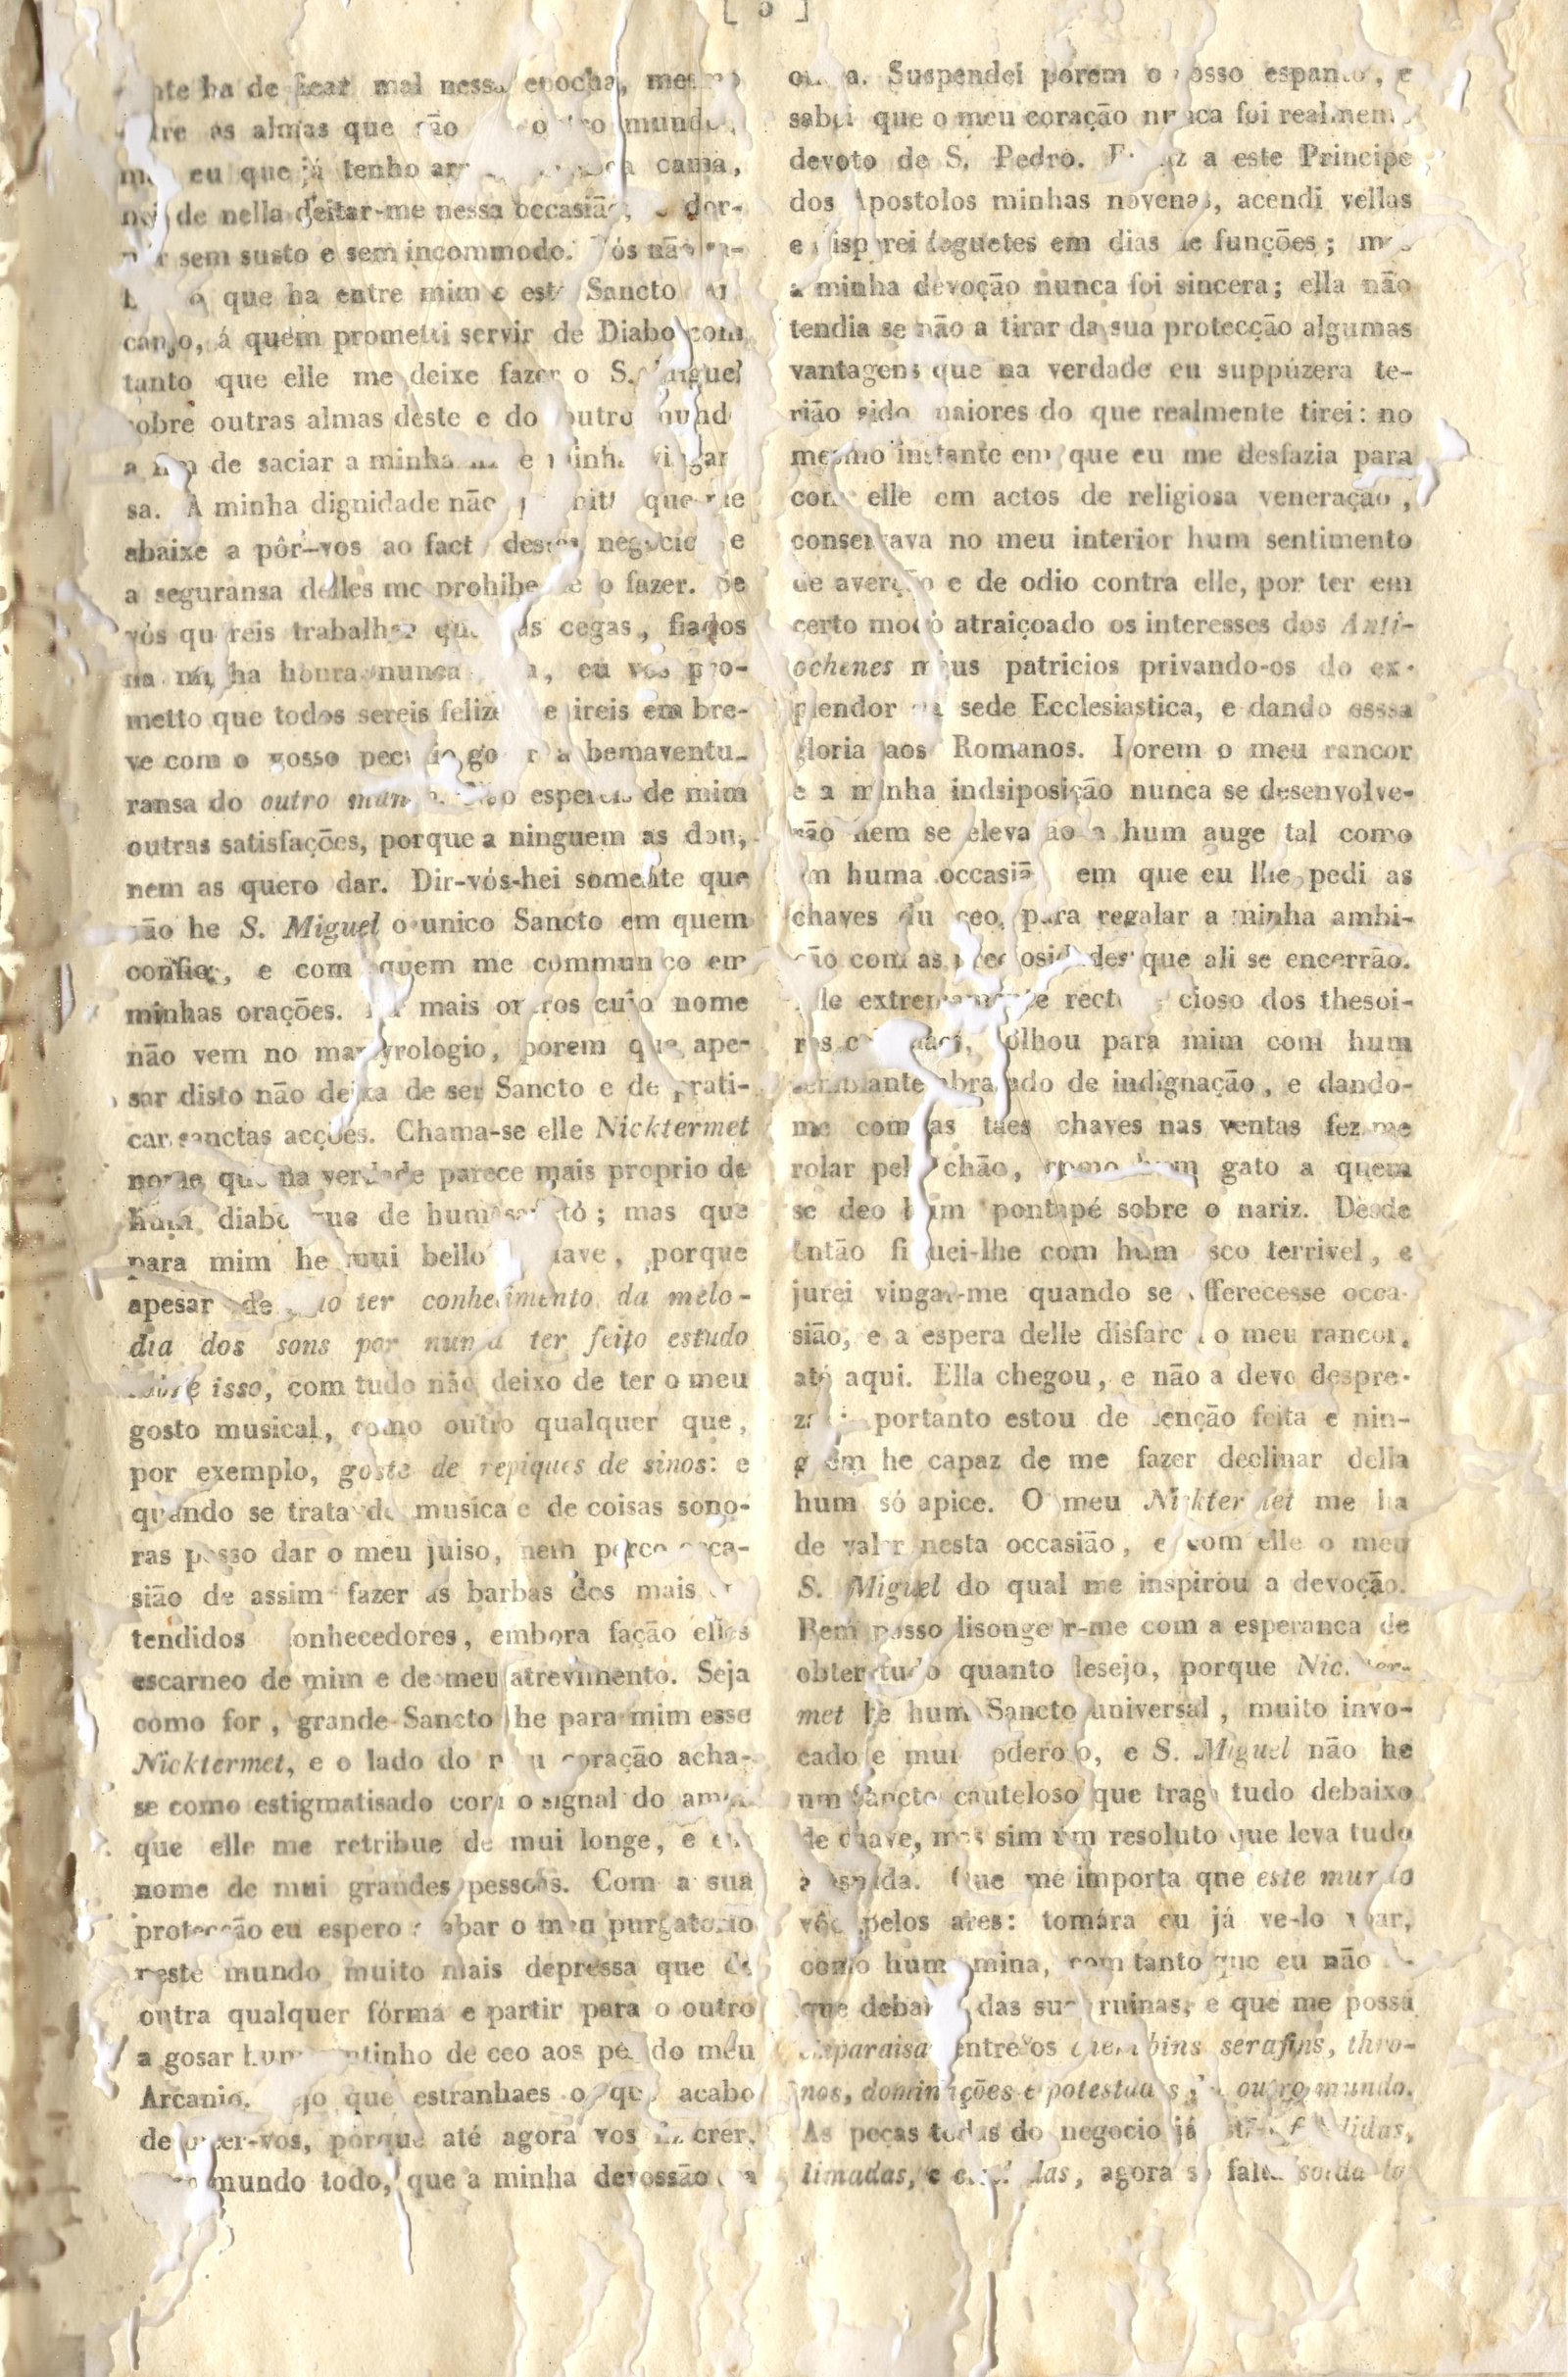 ha de ficar mal nessa epocha,
as almas que mundo,
eu que já tenho cama,
de nella deitar-me nessa occasião, dor-
sem susto e sem incommodo. Vós
que ha entre mim e este Sancto
canjo, á quem prometti servir de Diabo com
tanto que elle me deixe fazer o S. Miguel
sobre outras almas deste e do outro
de saciar a minha e minha
sa. A minha dignidade não que me
abaixe a pôr-vos ao facto destes negocios e
a seguransa delles me prohibe o fazer. Se
vós quereis trabalhar cegas, fiados
na minha honra nunca eu vos pro-
metto que todos sereis felizes e ireis em bre-
ve com o vosso a bemaventu-
ransa do outro espereis de mim
outras satisfações, porque a ninguem as dou,
nem as quero dar. Dir-vós-hei somente que
não he S. Miguel o unico Sancto em quem
confio, e com quem me communico em
minhas orações. mais outros cujo nome
não vem no martyrologio, porem que ape-
sar disto não deixa de ser Sancto e de prati-
car sanctas acções. Chama-se elle Nicktermet
nome que na verdade parece mais proprio de
hum diabo que de hum ; mas que
para mim he mui bello suave, porque
apesar de não ter conhecimento da melo-
dia dos sons por nunca ter feito estudo
sobre isso, com tudo não deixo de ter o meu
gosto musical, como outro qualquer que,
por exemplo, goste de repiques de sinos: e
quando se trata de musica e de coisas sono-
ras posso dar o meu juiso, nem perco occa-
sião de assim fazer as barbas dos mais
tendidos conhecedores, embora fação elles
escarneo de mim e de meu atrevimento. Seja
como for, grande Sancto he para mim esse
Nicktermet, e o lado do meu coração acha-
se como estigmatisado com o signal do amor
que elle me retribue de mui longe, e em
nome de mui grandes pessoas. Com a sua
protecção eu espero acabar o meu purgatorio
neste mundo muito mais depressa que de
outra qualquer fórma e partir para o outro
a gosar hum cantinho de ceo aos pés do meu
Arcanjo. que estranhaes o que acabo
de dizer-vos, porque até agora vos fiz crer,
mundo todo, que a minha devossão era
outra. Suspendei porem o vosso espanto, e
sabei que o meu coração nunca foi realmente
devoto de S. Pedro. a este Principe
dos Apostolos minhas novenas, acendi vellas
e disparei foguetes em dias de funções; mas
a minha devoção nunca foi sincera; ella não
tendia se não a tirar da sua protecção algumas
vantagens que na verdade eu suppúzera te-
rião sido maiores do que realmente tirei: no
mesmo instante em que eu me desfazia para
com elle em actos de religiosa veneração,
conservava no meu interior hum sentimento
de averção e de odio contra elle, por ter em
certo modo atraiçoado os interesses dos Anti-
ochenes meus patricios privando-os do ex-
plendor da sede Ecclesiastica, e dando esssa
gloria aos Romanos. Porem o meu rancor
e a minha indsiposição nunca se desenvolve-
rão nem se a hum auge tal como
em huma occasião em que eu lhe pedi as
chaves du ceo, para regalar a minha ambi-
ção com as preciosidades que ali se encerrão.
Elle extremamente recto cioso dos thesoi-
ros olhou para mim com hum
semblante abrasado de indignação, e dando-
me com as taes chaves nas ventas fez me
rolar pelo chão, como hum gato a quem
se deo hum pontapé sobre o nariz. Desde
então fiquei-lhe com hum asco terrivel, e
jurei vingar-me quando se offerecesse occa-
sião, e a espera delle disfarcei o meu rancor,
até aqui. Ella chegou, e não a devo despre-
zar; portanto estou de tenção feita e nin-
guem he capaz de me fazer declinar della
hum só apice. O meu Nicktermet me ha
de valer nesta occasião, e com elle o meu
S. Miguel do qual me inspirou a devoção.
Bem posso lisongear-me com a esperanca de
obter tudo quanto desejo, porque Nickter-
met he hum Sancto universal, muito invo-
cado e mui poderoso, e S. Miguel não he
um Sancto cauteloso que traga tudo debaixo
de chave, mas sim um resoluto que leva tudo
á espada. Que me importa que este mundo
vôe pelos ares: tomára eu já ve-lo voar,
como huma mina, com tanto que eu não
que debaixo das suas ruinas, e que me possa
entre os cherubins serafins, thro-
nos, dominações e potestades do outro mundo.
As peças todas do negocio já estão fundidas,
limadas, e agora só falta solda-lo